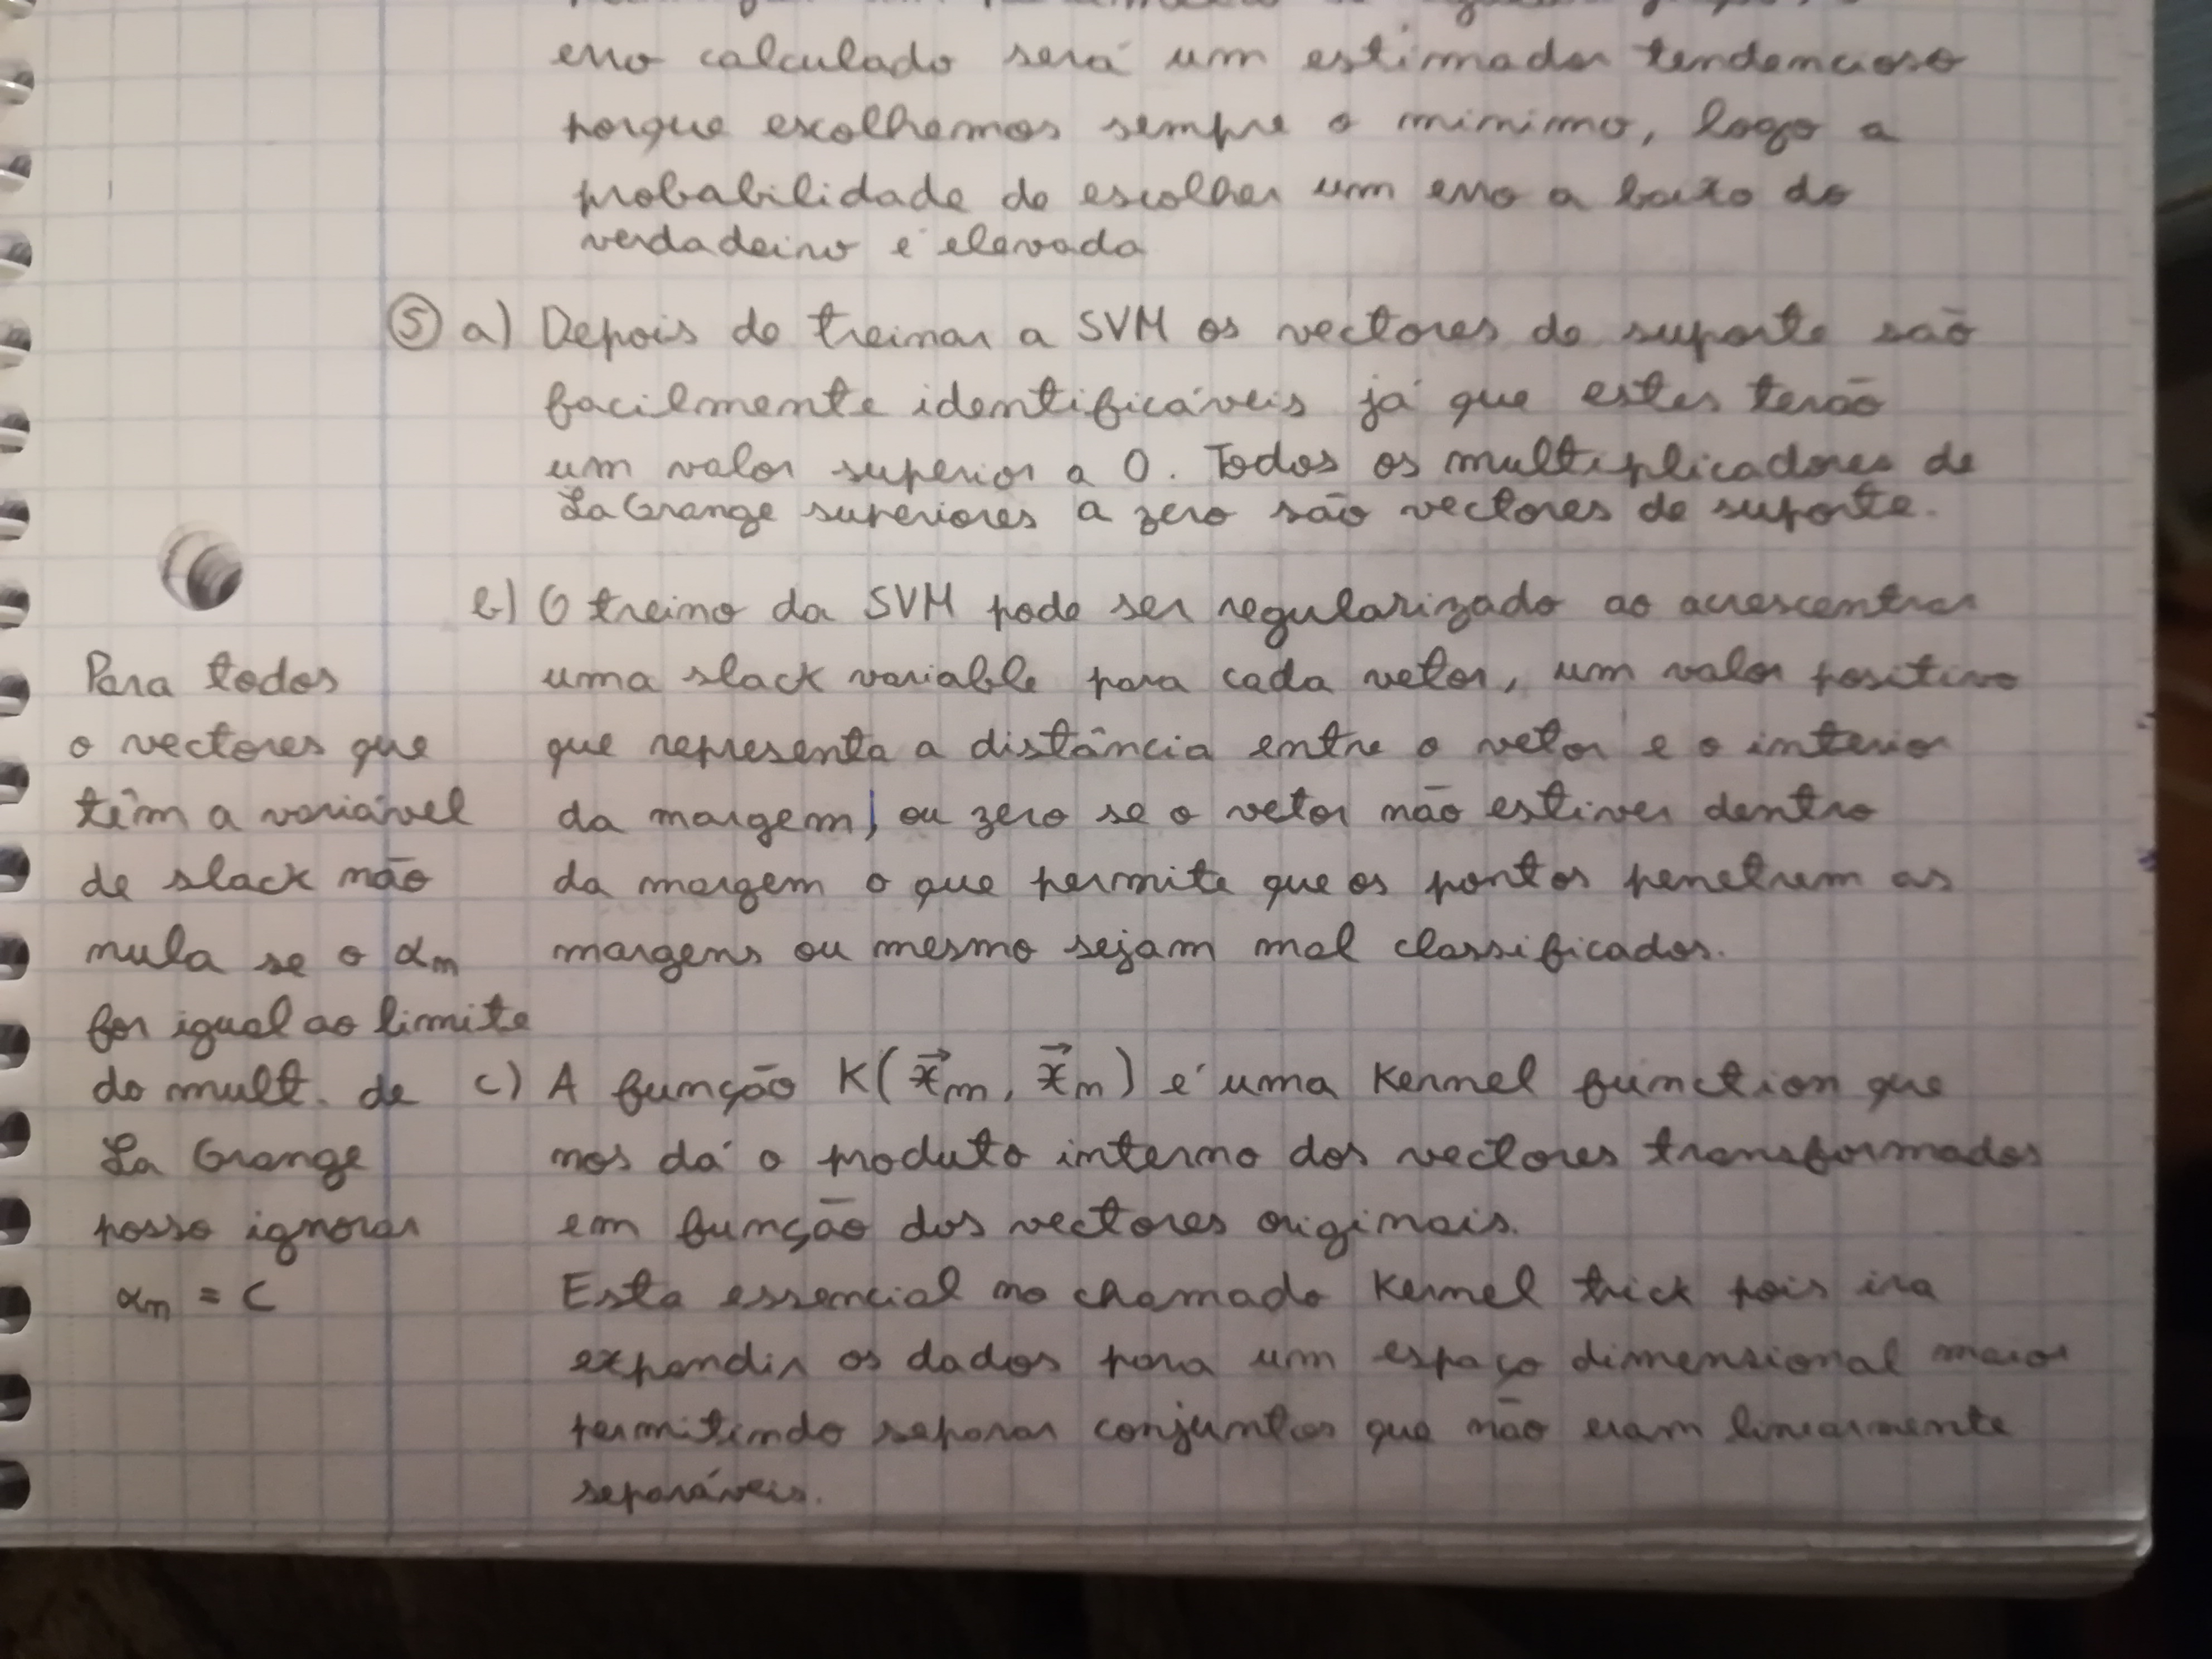 erro calculado será um estimador tendencioso
porque escolhemos sempre o minimo, logo a
probabilidade de escolher um erro a baixo do
verdadeiro é elevada
⑤ a) Depois de treinar a SVM os vectores de suporte são
facilmente identificáveis já que estes terão
um valor superior a 0. Todos os multiplicadores de
La Grange superiores a zero são vectores de suporte.
b) O treino da SVM pode ser regularizado ao acrescentar
uma slack variable para cada vetor, um valor positivo
que representa a distância entre o vetor e o interior
da margem, ou zero se o vetor não estiver dentro
da margem o que permite que os pontos penetrem as
margens ou mesmo sejam mal classificados.
Para todos
o vectores que
têm a variável
de slack não
nula se o αn
for igual ao limite
do mult. de
La Grange
posso ignorar
αn = C
c) A função K(x⃗m, x⃗n) é uma Kernel function que
nos dá o produto interno dos vectores transformados
em função dos vectores originais.
Esta essencial no chamado Kernel trick pois ira
expandir os dados para um espaço dimensional maior
permitindo separar conjuntos que não eram linearmente
separáveis.